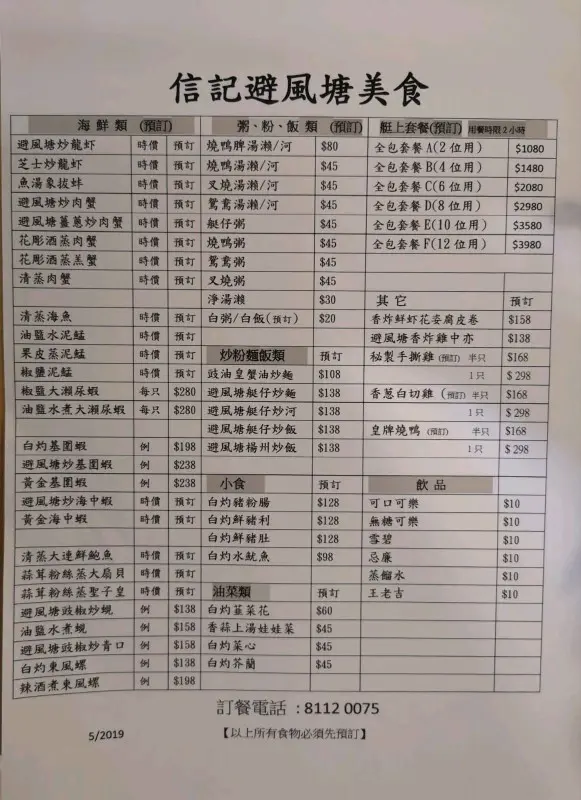 信記避風塘美食
海鮮類 (預訂)
避風塘炒龍虾 時價 預訂
芝士炒龍蝦 時價 預訂
魚湯象拔蚌 時價 預訂
避風塘炒肉蟹 時價 預訂
避風塘薑蔥炒肉蟹 時價 預訂
花彫酒蒸肉蟹 時價 預訂
花彫酒蒸羔蟹 時價 預訂
清蒸肉蟹 時價 預訂
清蒸海魚 時價 預訂
油鹽水泥鯭 時價 預訂
果皮蒸泥鯭 時價 預訂
椒鹽泥鯭 時價 預訂
椒鹽大瀨尿蝦 每只 $280
油鹽水煮大瀨尿蝦 每只 $280
白灼基圍蝦 例 $198
避風塘炒基圍蝦 例 $238
黃金基圍蝦 例 $238
避風塘炒海中蝦 時價 預訂
黃金海中蝦 時價 預訂
清蒸大連鮮鮑魚 時價 預訂
蒜茸粉絲蒸大扇貝 時價 預訂
蒜茸粉絲蒸聖子皇 時價 預訂
避風塘豉椒炒蜆 例 $138
油鹽水煮蜆 例 $158
避風塘豉椒炒青口 例 $158
白灼東風螺 例 $138
辣酒煮東風螺 例 $198
粥、粉、飯類 (預訂)
燒鴨脾湯瀨/河 $80
燒鴨湯瀨/河 $45
叉燒湯瀨/河 $45
鴛鴦湯瀨/河 $45
艇仔粥 $45
燒鴨粥 $45
鴛鴦粥 $45
叉燒粥 $45
淨湯瀨 $30
白粥/白飯(預訂) $20
炒粉麵飯類 預訂
豉油皇蟹油炒麵 $108
避風塘艇仔炒麵 $138
避風塘艇仔炒河 $138
避風塘艇仔炒飯 $138
避風塘楊州炒飯 $138
小食 預訂
白灼豬粉腸 $128
白灼鮮豬利 $128
白灼鮮豬肚 $128
白灼水魷魚 $98
油菜類 預訂
白灼韮菜花 $60
香蒜上湯娃娃菜 $45
白灼菜心 $45
白灼芥蘭 $45
艇上套餐(預訂) 用餐時限2小時
全包套餐 A(2 位用) $1080
全包套餐 B(4 位用) $1480
全包套餐 C(6 位用) $2080
全包套餐 D(8 位用) $2980
全包套餐 E(10 位用) $3580
全包套餐 F(12 位用) $3980
其它 預訂
香炸鮮虾花姿腐皮卷 $158
避風塘香炸雞中亦 $138
秘製手撕雞 (預訂) 半只 $168
1只 $298
香蔥白切雞 (預訂) 半只 $168
1只 $298
皇牌燒鴨 (預訂) 半只 $168
1只 $298
飲品
可口可樂 $10
無糖可樂 $10
雪碧 $10
忌廉 $10
蒸餾水 $10
王老吉 $10
訂餐電話 :8112 0075
5/2019
【以上所有食物必須先預訂】